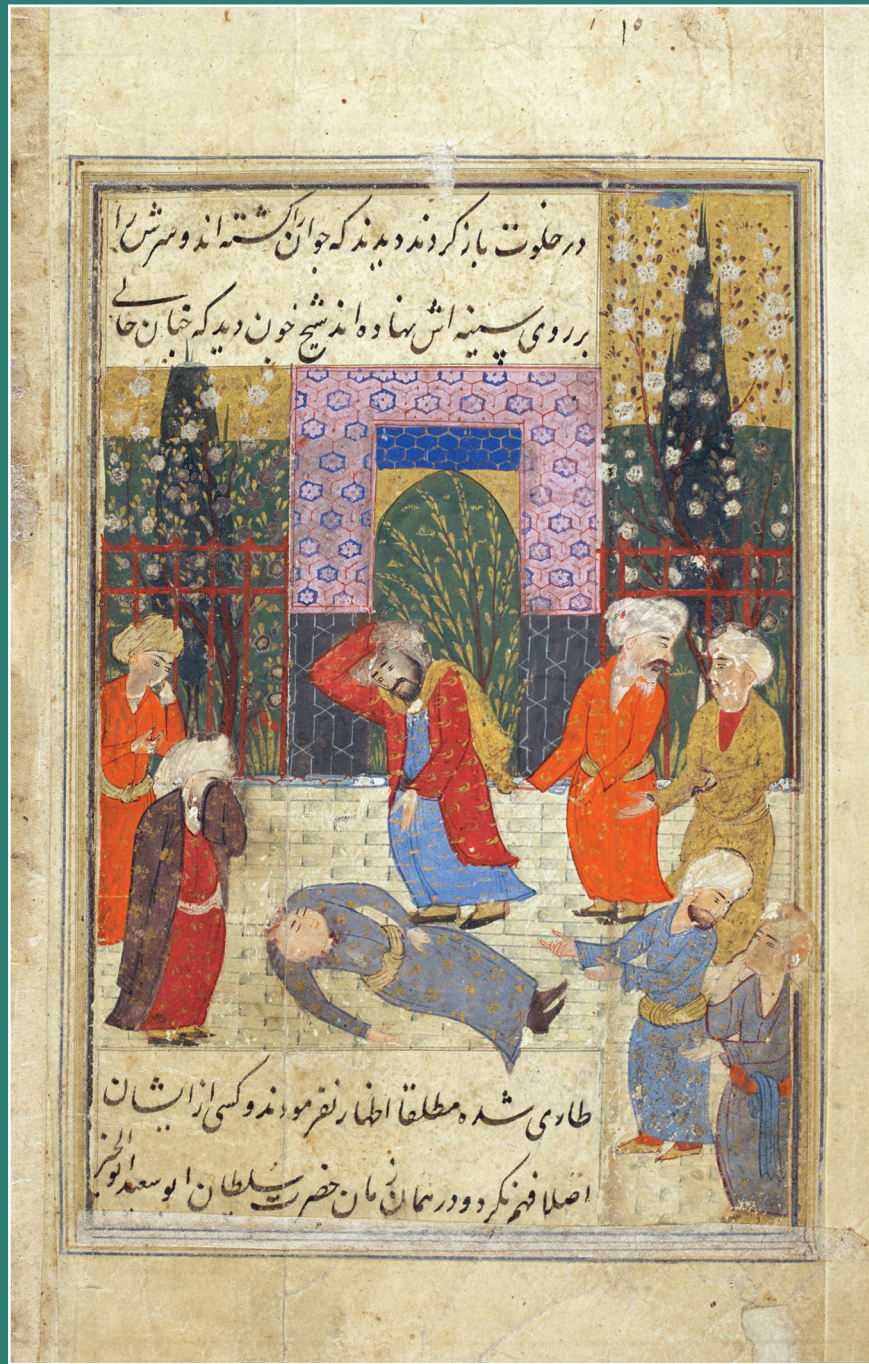 ۱۵
در خلوت باز کردند دیدند که جوان را کشته اند و سرش را
بر روی سینه اش نهاده اند شیخ چون دید که چنان حالی
طاری شده مطلقا اظهار نفرمودند و کسی از ایشان
اصلا فهم نکرد و در همان زمان حضرت سلطان ابو سعید ابو الخیر